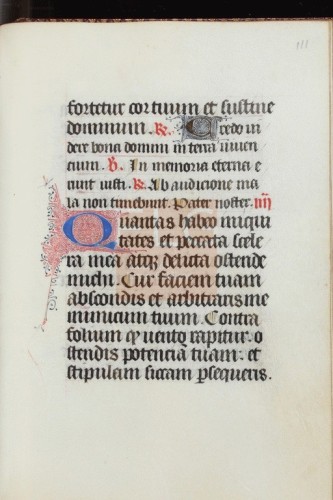 111
fortetur cor tuum et sustine
dominum. ℟. Credo vi
dere bona domini in terra viuen
cium. ℣. In memoria eterna e
runt iusti. ℟. Ab audicione ma
la non timebunt. Pater noster. iiij
Quantas habeo iniqui
tates et peccata scele
ra mea atq; delicta ostende
michi. Cur faciem tuam
abscondis et arbitraris me
inimicum tuum. Contra
folium qd̕ uento rapitur. o
stendis potencia tuam. et
stipulam siccam ꝑsequeris.